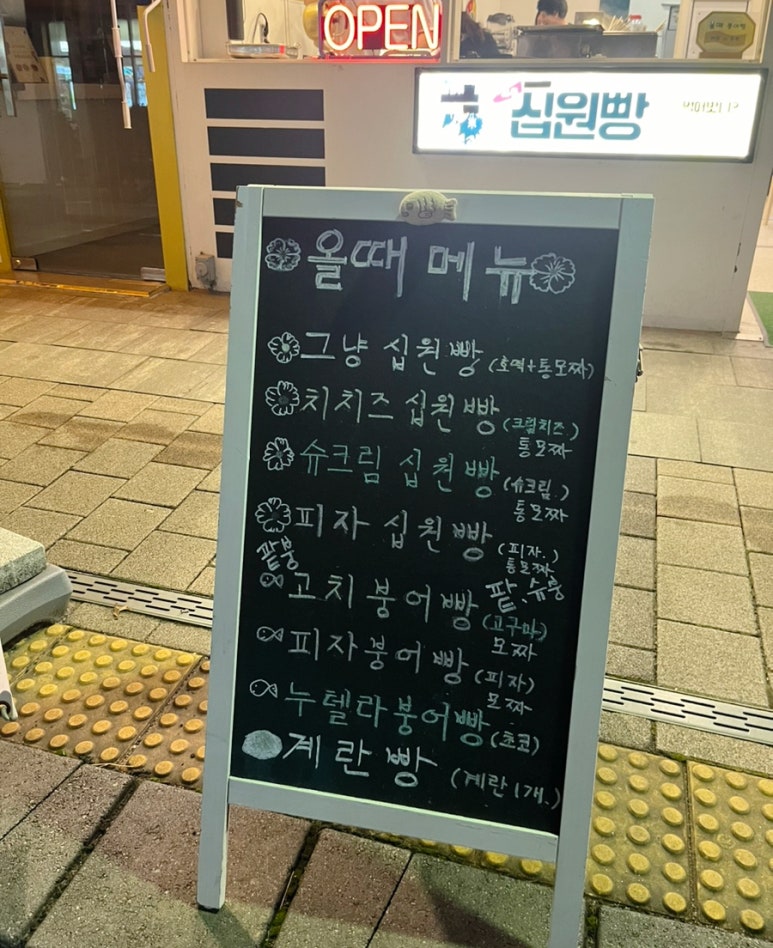 OPEN
십원빵
올때 메뉴
그냥 십원빵 (호떡+통모짜)
치치즈 십원빵 (크림치즈.)
통모짜
슈크림 십원빵 (슈크림.)
통모짜
피자 십원빵 (피자.)
통모짜
팥붕
팥.슈붕
고치붕어빵 (고구마)
모짜
피자붕어빵 (피자)
모짜
누텔라붕어빵 (초코)
계란빵 (계란1개.)